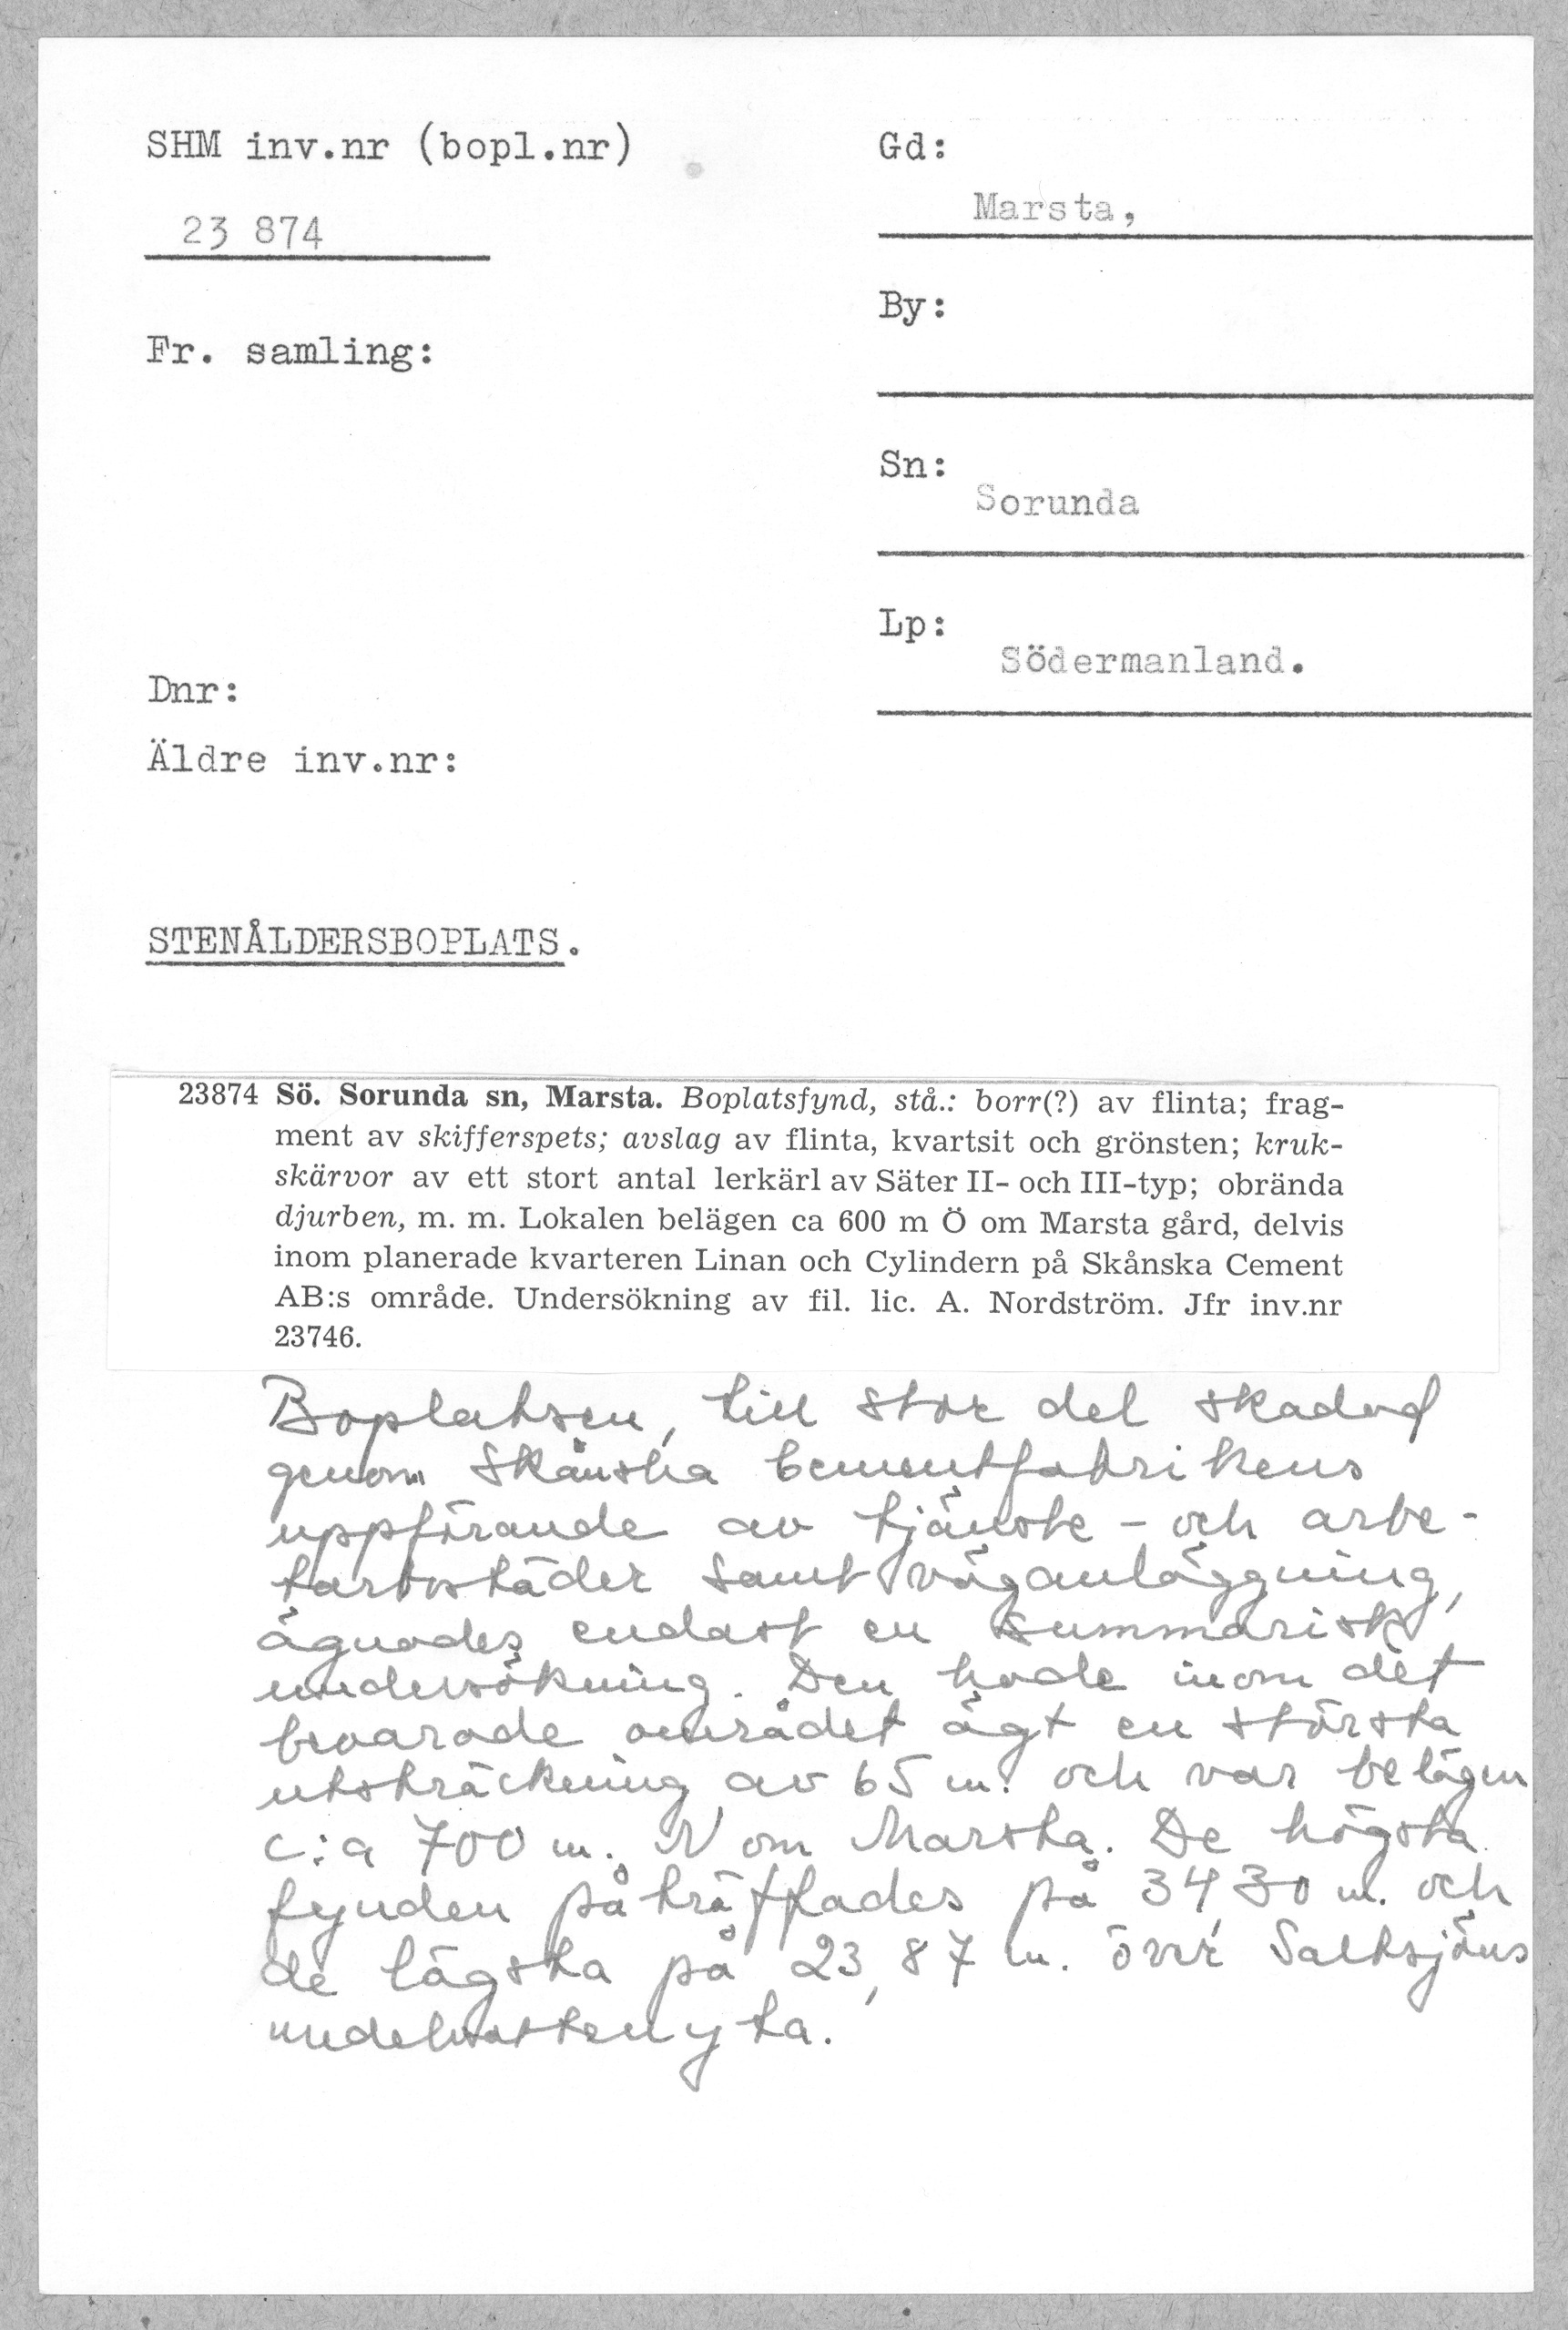 SHM inv.nr (bopl.nr)
23 874
Fr. samling:
Dnr:
Äldre inv.nr:
Gd:
Marsta,
By:
Sn:
Sorunda
Lp:
Södermanland.
STENÅLDERSBOPLATS.
23874 Sö. Sorunda sn, Marsta. Boplatsfynd, stå.: borr(?) av flinta; frag-
ment av skifferspets; avslag av flinta, kvartsit och grönsten; kruk-
skärvor av ett stort antal lerkärl av Säter II- och III-typ; obrända
djurben, m. m. Lokalen belägen ca 600 m Ö om Marsta gård, delvis
inom planerade kvarteren Linan och Cylindern på Skånska Cement
AB:s område. Undersökning av fil. lic. A. Nordström. Jfr inv.nr
23746.
Boplatsen, till stor del skadad
genom Skånska Cementfabrikens
uppförande av tjänste- och arbe-
tarbostäder samt väganläggning,
ägnades endast en summarisk
undersökning. Den hade inom det
bevarade området ägt en största
utsträckning av 65 m. och var belägen
c:a 700 m. N om Marsta. De högsta
fynden påträffades på 34,30 m. och
de lägsta på 23,87 m. över Saltsjöns
medelvattenyta.